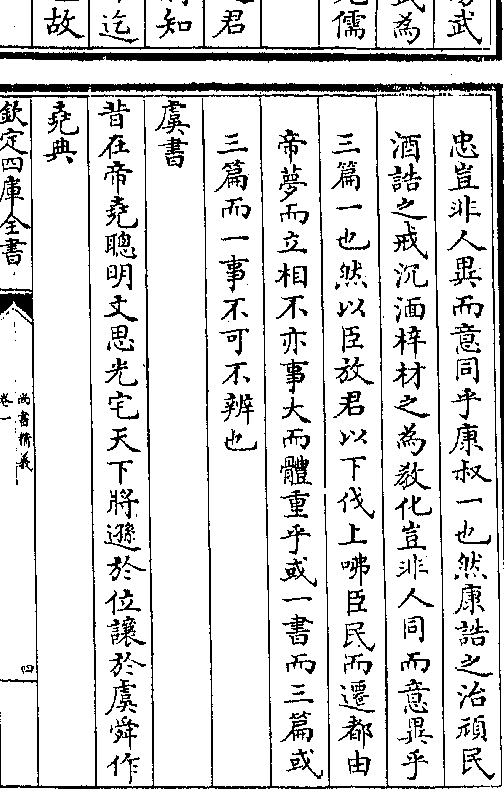 武
武為
儒
君
知
迄
故
忠豈非人異而意同乎康叔一也然康誥之治頑民
酒誥之戒沉湎梓材之為教化豈非人同而意異乎
三篇一也然以臣放君以下伐上咈臣民而遷都由
帝夢而立相不亦事大而體重乎或一書而三篇或
三篇而一事不可不辨也
虞書
昔在帝堯聰明文思光宅天下將遜於位讓於虞舜作
堯典
欽定四庫全書
尚書精義
卷一
四